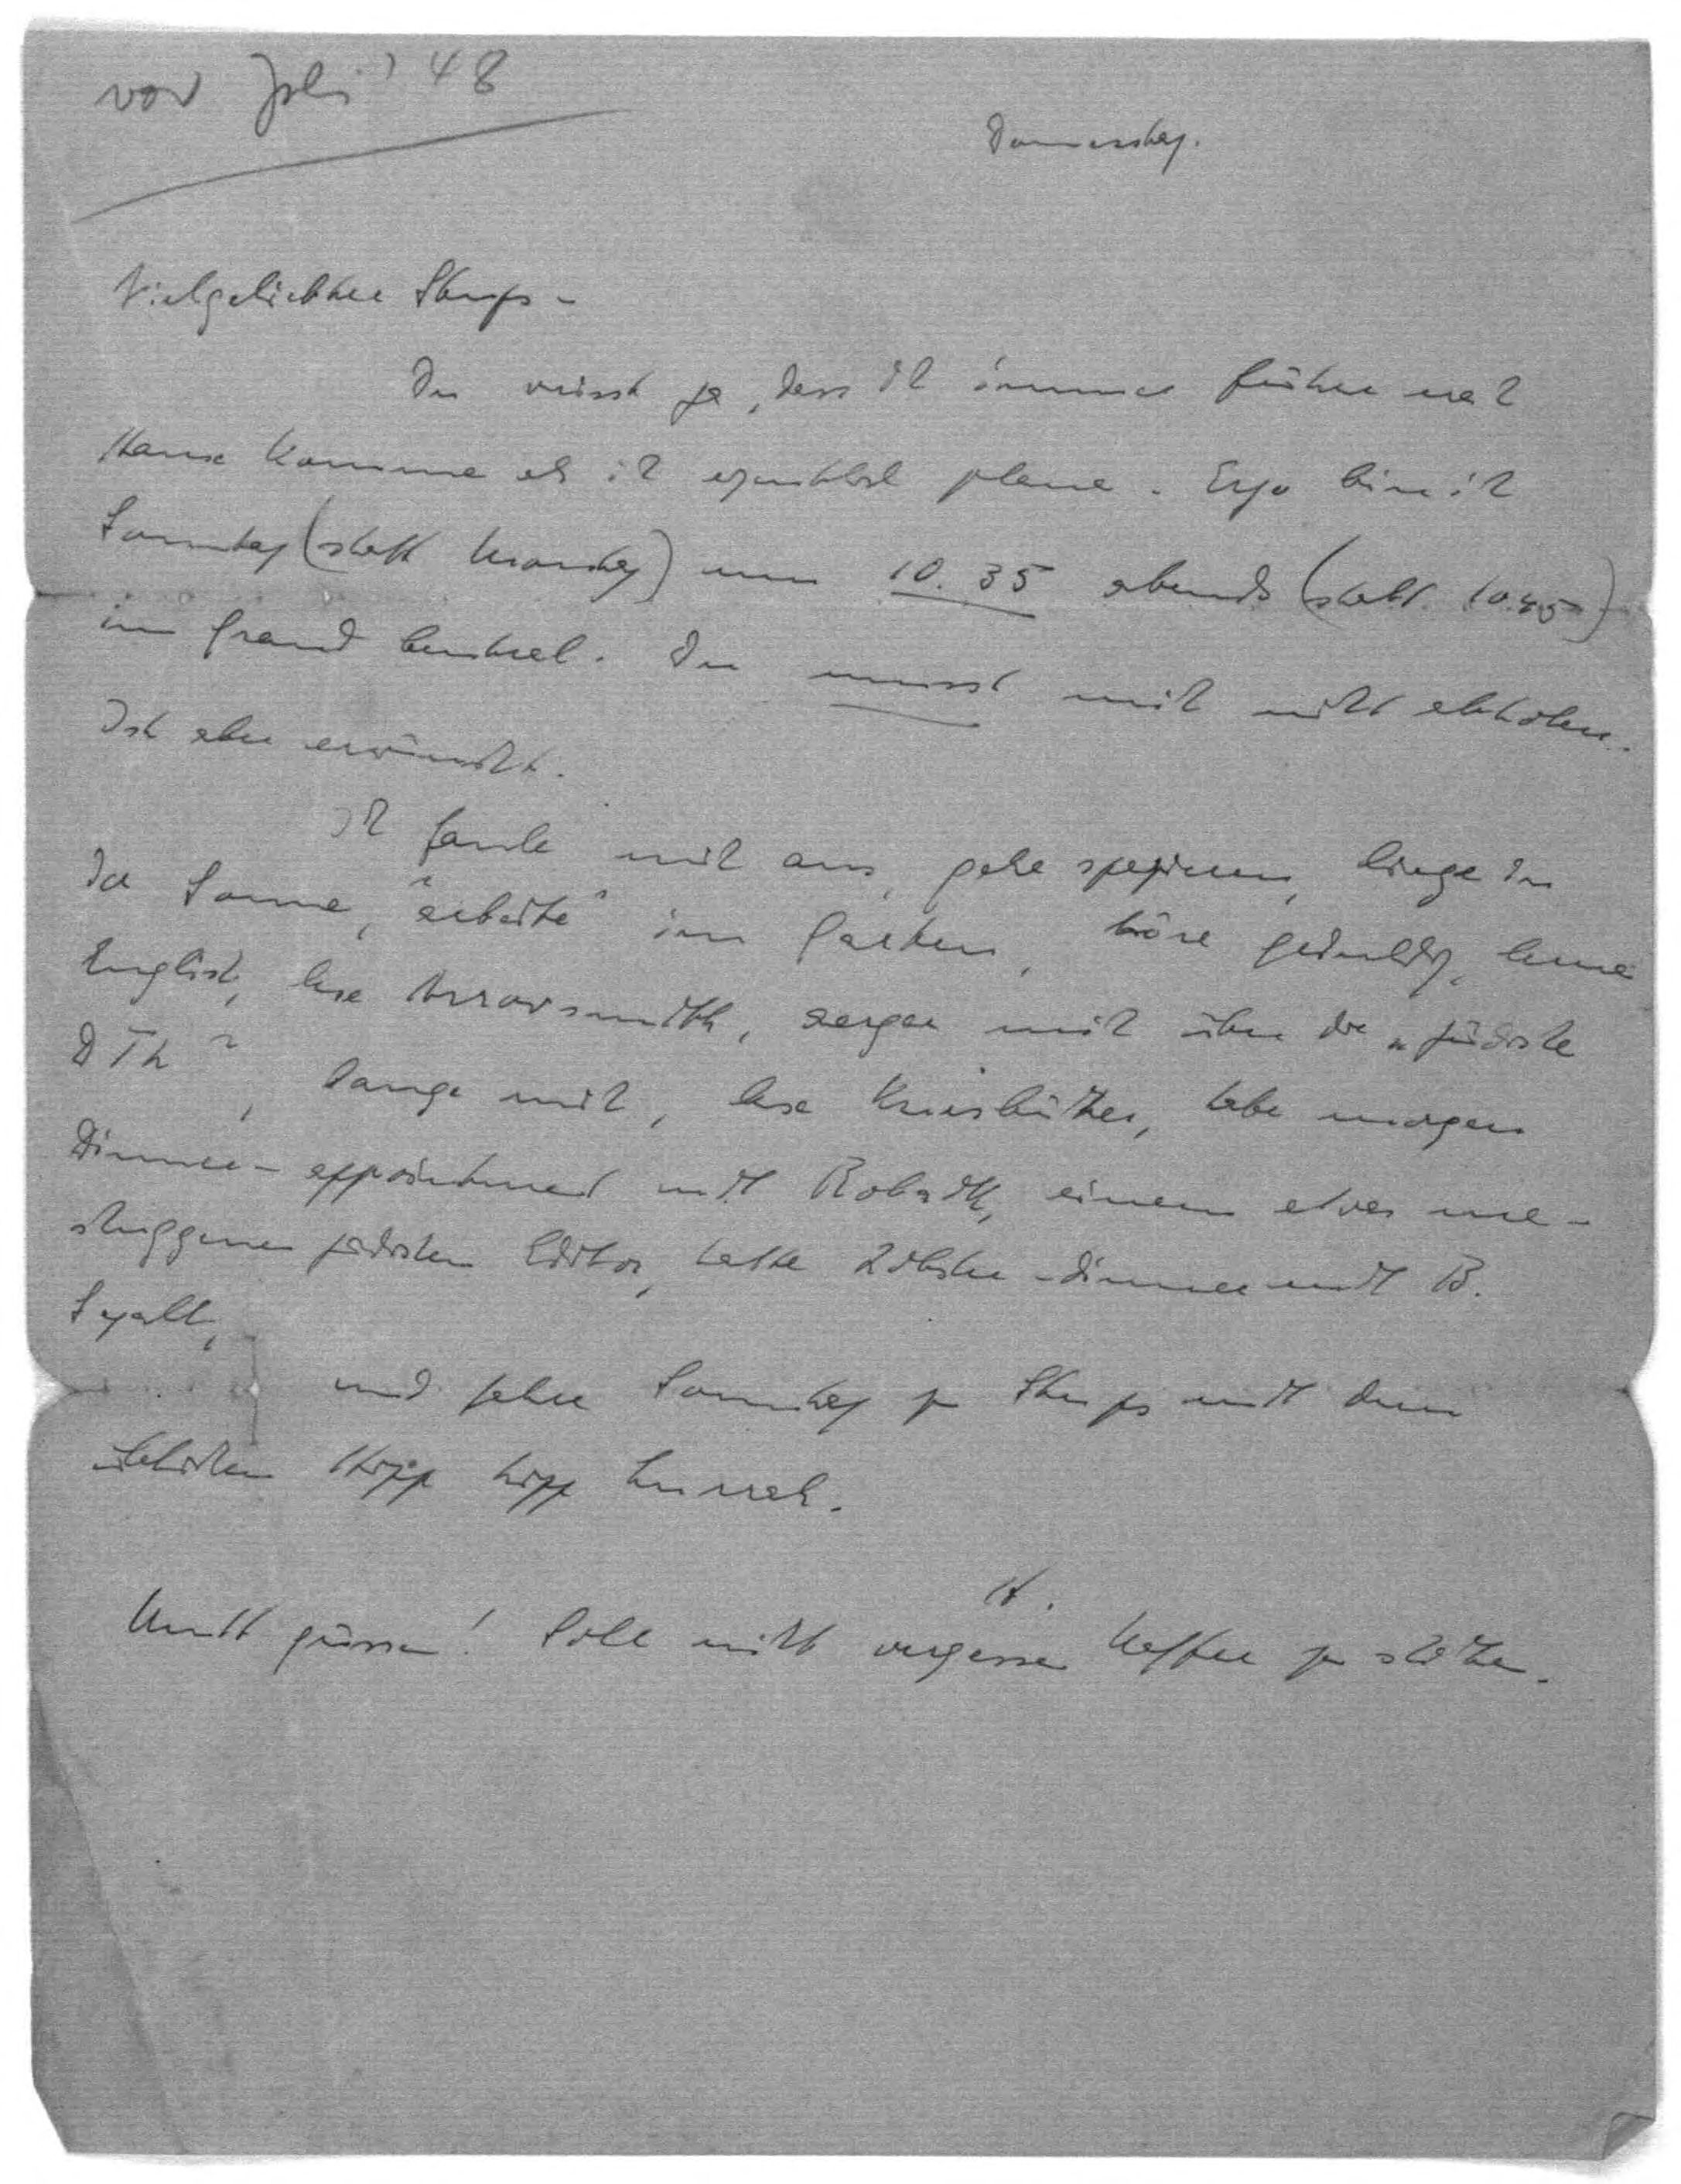 vor Juli '48
Donnerstag.
Vielgeliebter Stups –
Du weisst ja, dass ich immer früher nach
Hause komme als ich eigentlich plane. Ergo bin ich
Sonntag (statt Montag) um 10.35 abends (statt 10.45)
im Grand Central. Du musst mich nicht abholen.
Ist aber erwünscht.
Ich faule mich aus, gehe spazieren, liege in
der Sonne, "arbeite" im Garten, höre geduldig, lerne
Englisch, lese Arrowsmith, aergere mich über die „jüdische
DTh", lange mich, lese Krisbücher, habe morgen
Dinner-appointment mit Robach, einem etwas me-
schuggenen jüdischen Editor, hatte Lobster-dinner mit B.
Szold,
und fahre Sonntag zu Stups mit dem
Hipp hipp hurrah.
H.
Mutt grüssen! Soll nicht vergessen Kaffee zu schicken.